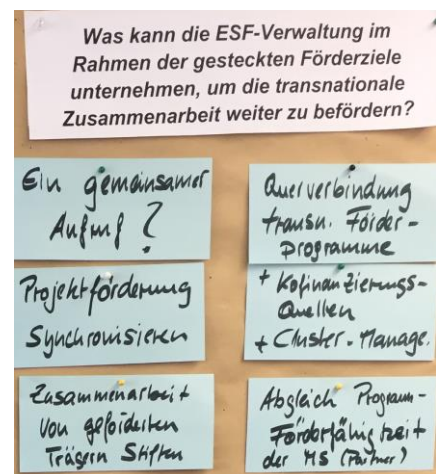 Was kann die ESF-Verwaltung im
Rahmen der gesteckten Förderziele
unternehmen, um die transnationale
Zusammenarbeit weiter zu befördern?
Ein gemeinsamer
Aufruf?
Projektförderung
Synchronisieren
Zusammenarbeit
von geförderten
Trägern Stiften
Querverbindung
transn. Förder-
programme
+ Kofinanzierungs-
Quellen
+ Cluster-Manage.
Abgleich Programm-
Förderfähigkeit
der MS (Partner)